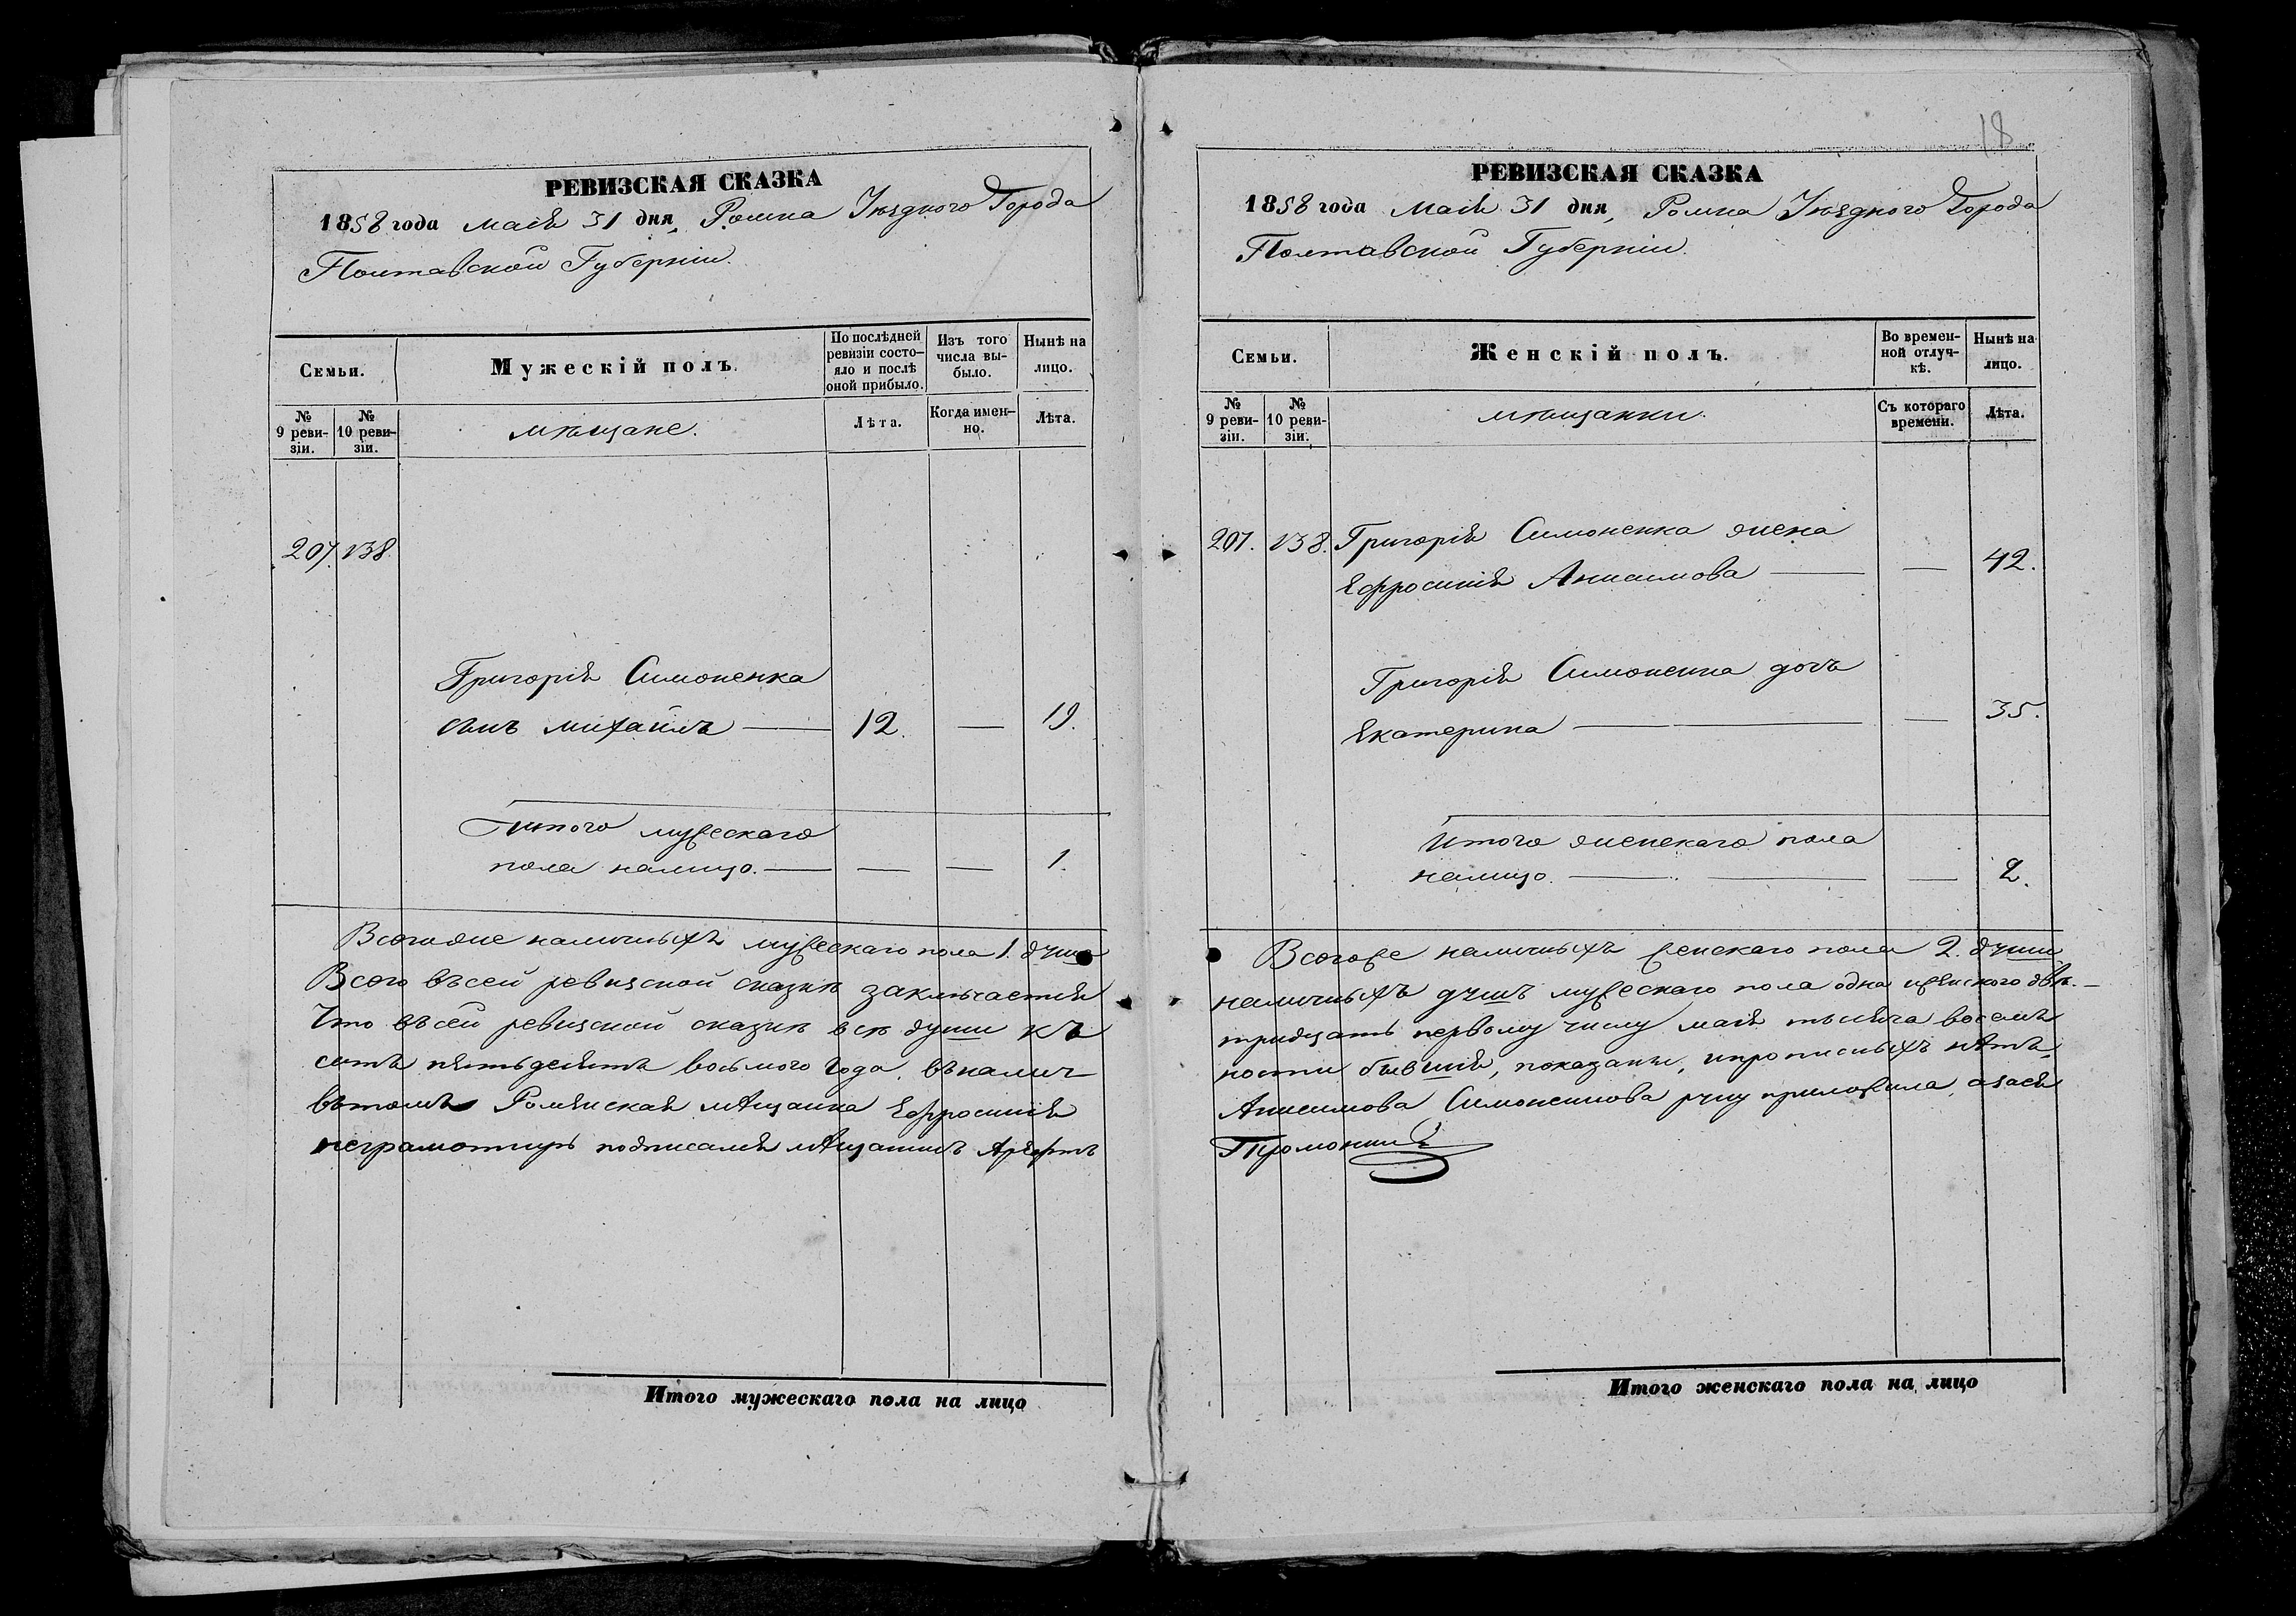 РЕВИЗСКАЯ СКАЗКА
1858 года Маія 31 дня, Ромна Уѣзднаго Города
Полтавской Губерніи.
Семьи.
Мужескій полъ.
По послѣдней ревизіи состояло и послѣ оной прибыло.
Изъ того числа выбыло.
Нынѣ на лицо.
№ 9 ревизіи.
№ 10 ревизіи.
мѣщане.
Лѣта.
Когда именно.
Лѣта.
207. 138.
Григорія Симоненка
сынъ михаилъ — 12. — 19.
Итого мужескаго
пола налицо. — — — 1.
Всегоже наличныхъ мужескаго пола 1. душа
Всего въсей ревизской сказкѣ заключается
Что въсей ревизской сказкѣ всѣ души къ
сотъ пятьдесятъ восьмого года, въналич
вътомъ Роменская мѣщанка Ефросинія
неграмотную подписался мѣщанинъ
Итого мужескаго пола на лицо
18
РЕВИЗСКАЯ СКАЗКА
1858 года Маія 31 дня, Ромна Уѣзднаго Города
Полтавской Губерніи.
Семьи.
Женскій полъ.
Во временной отлучкѣ.
Нынѣ на лицо.
№ 9 ревизіи.
№ 10 ревизіи.
мѣщанки.
Съ котораго времени.
Лѣта.
207. 138. Григорія Симоненка жена
Ефросинія Анисимова — — 42.
Григорія Симоненка дочь
Екатерина — — — 35.
Итого женскаго пола
налицо. — — — 2.
Всегоже наличныхъ женскаго пола 2. души
наличныхъ душъ мужескаго пола одна иженского двѣ. —
тридцать первому числу маія тысяча восемь
ности бывшія, показаны, ипрописныхъ нѣтъ,
Анисимова Симоненкова руку приложила, азаея
Итого женскаго пола на лицо